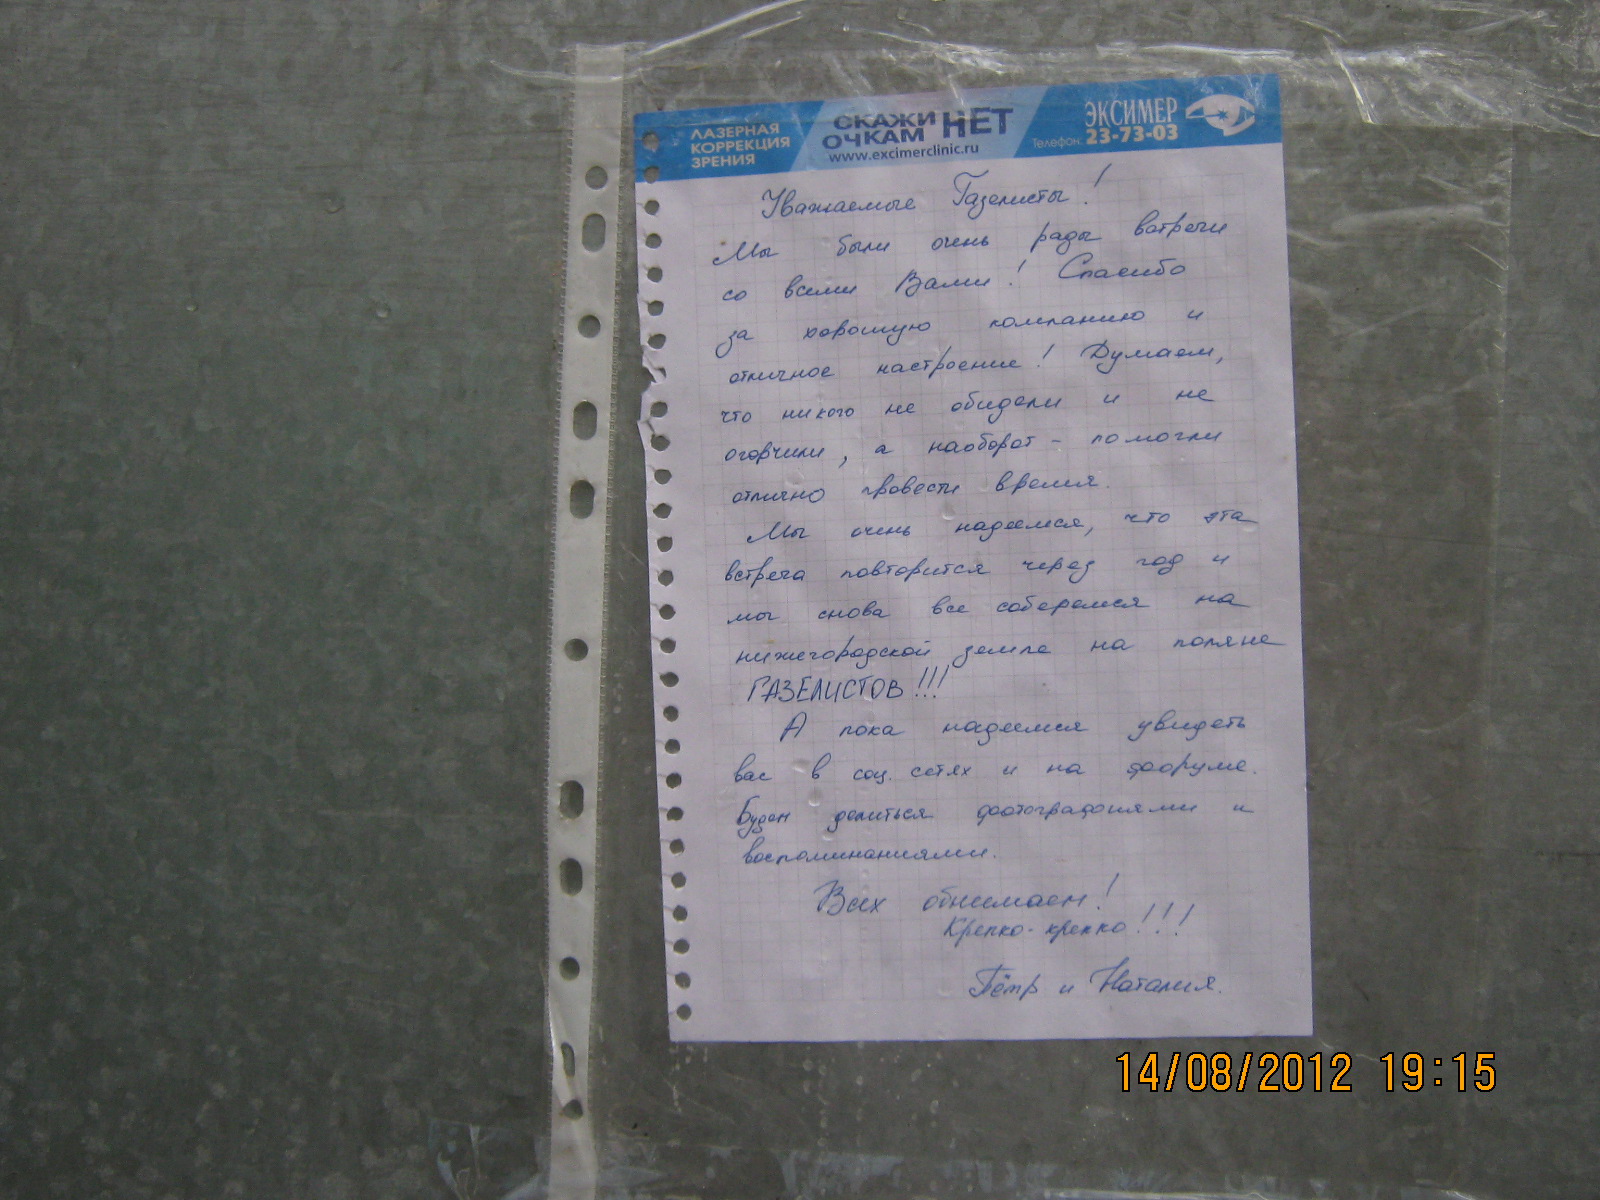 ЛАЗЕРНАЯ
КОРРЕКЦИЯ
ЗРЕНИЯ
СКАЖИ НЕТ
ОЧКАМ
www.excimerclinic.ru
ЭКСИМЕР
Телефон: 23-73-03
Уважаемые Газелисты!
Мы были очень рады встречи
со всеми Вами! Спасибо
за хорошую компанию и
отличное настроение! Думаем,
что никого не обидели и не
огорчили, а наоборот - помогли
отлично провести время.
Мы очень надеемся, что эта
встреча повторится через год и
мы снова все соберемся на
нижегородской земле на поляне
ГАЗЕЛИСТОВ!!!
А пока надеемся увидеть
вас в соц. сетях и на форуме.
Будем делиться фотографиями и
воспоминаниями.
Всех обнимаем!
Крепко-крепко!!!
Пётр и Наталия.
14/08/2012 19:15